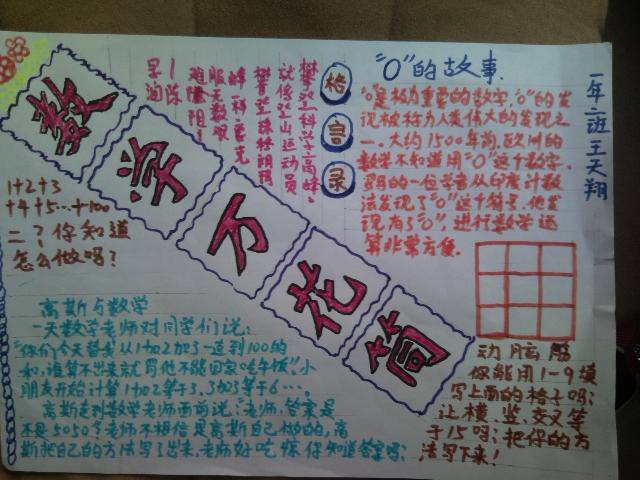 数学万花筒
格言录
攀登科学高峰，
就像登山运动员
攀登珠穆朗玛
峰一样要克
服无数艰
难险阻！
"0"的故事.
"0"是极为重要的数字，"0"的发
现被称为人类伟大的发现之
一。大约1500年前，欧洲的
数学不知道用"0"这个数字.
的一位学者从印度计数
法发现了"0"这个符号。他发
现有了"0"，进行数学运
算非常方便.
一年二班王天翔
1+2+3
+4+5…+100
=？你知道
怎么做吗？
高斯与数学
一天数学老师对同学们说：
"你们今天替我从1加2加3一直到100的
和，谁算不出来就罚他不能回家吃午饭"小
朋友开始计算1加2等于3，3加3等于6…
高斯走到数学老师面前说：老师，答案是
不是5050？老师不相信是高斯自己做的，高
斯把自己的方法写了出来，老师好吃惊你知道答案吗？
动脑筋
你能用1-9填
写上面的格子吗？
让横、竖、交叉等
于15吗？把你的方
法写下来！